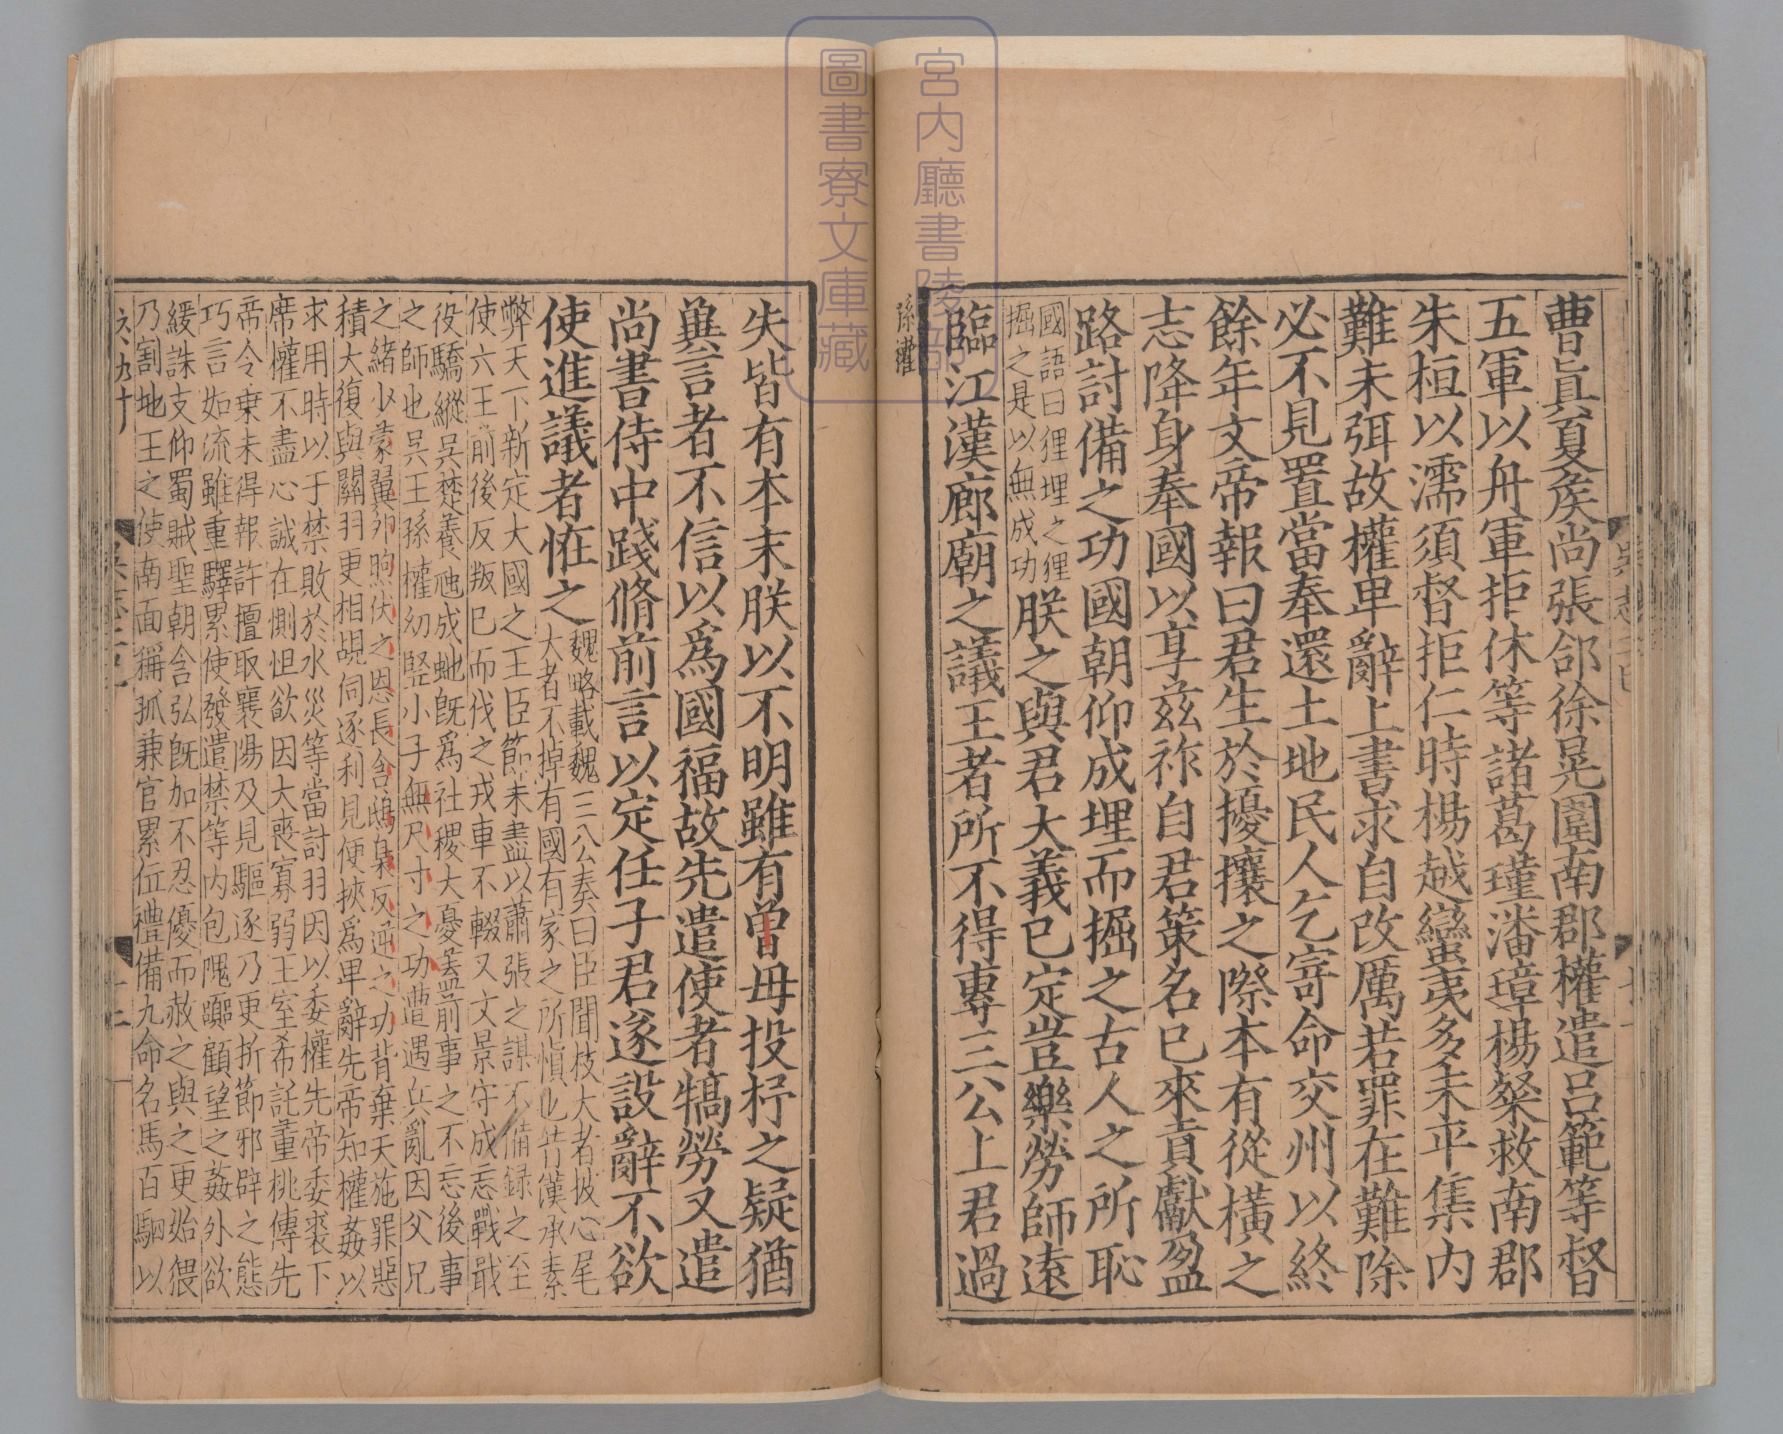 曹眞夏矦尚張郃徐晃圍南郡權遣呂範等督
五軍以舟軍拒休等諸葛瑾潘璋楊粲救南郡
朱桓以濡須督拒仁時楊越蠻夷多未平集內
難未弭故權卑辭上書求自改厲若罪在難除
必不見置當奉還土地民人乞寄命交州以終
餘年文帝報曰君生於擾攘之際本有從橫之
志降身奉國以享兹祚自君策名已來貢獻盈
路討備之功國朝仰成埋而掘之古人之所恥
國語曰狸埋之狸
掘之是以無成功
朕之與君大義已定豈樂勞師遠
臨江漢廊廟之議王者所不得專三公上君過
孫權
失皆有本末朕以不明雖有曾母投杼之疑猶
兾言者不信以爲國福故先遣使者犒勞又遣
尚書侍中踐脩前言以定任子君遂設辭不欲
使進議者恠之
魏略載魏三公奏曰臣聞枝大者披心尾
大者不掉有國有家之所愼也昔漢承秦
弊天下新定大國之王臣節未盡以蕭張之謀不備録之至
使六王前後反叛已而伐之戎車不輟又文景守成忘戰戢
役驕縱吳楚養虺成虵旣爲社稷大憂蓋前事之不忘後事
之師也吳王孫權幼豎小子無尺寸之功遭遇兵亂因父兄
之緒少蒙翼卵昫伏之恩長含鴟梟反逆之功背棄天施罪惡
積大復與關羽更相覘伺逐利見便挾爲卑辭先帝知權姦以
求用時以于禁敗於水災等當討羽因以委權先帝委裘下
席權不盡心誠在惻怛欲因大喪寡弱王室希託董桃傳先
帝令乗未得報許擅取襄陽及見驅逐乃更折節邪辟之態
巧言如流雖重驛累使發遣禁等內包隗囂顧望之姦外欲
緩誅支仰蜀賊聖朝含弘旣加不忍優而赦之與之更始猥
乃割地王之使南面稱孤兼官累位禮備九命名馬百駟以
宮内廳書陵部
圖書寮文庫藏